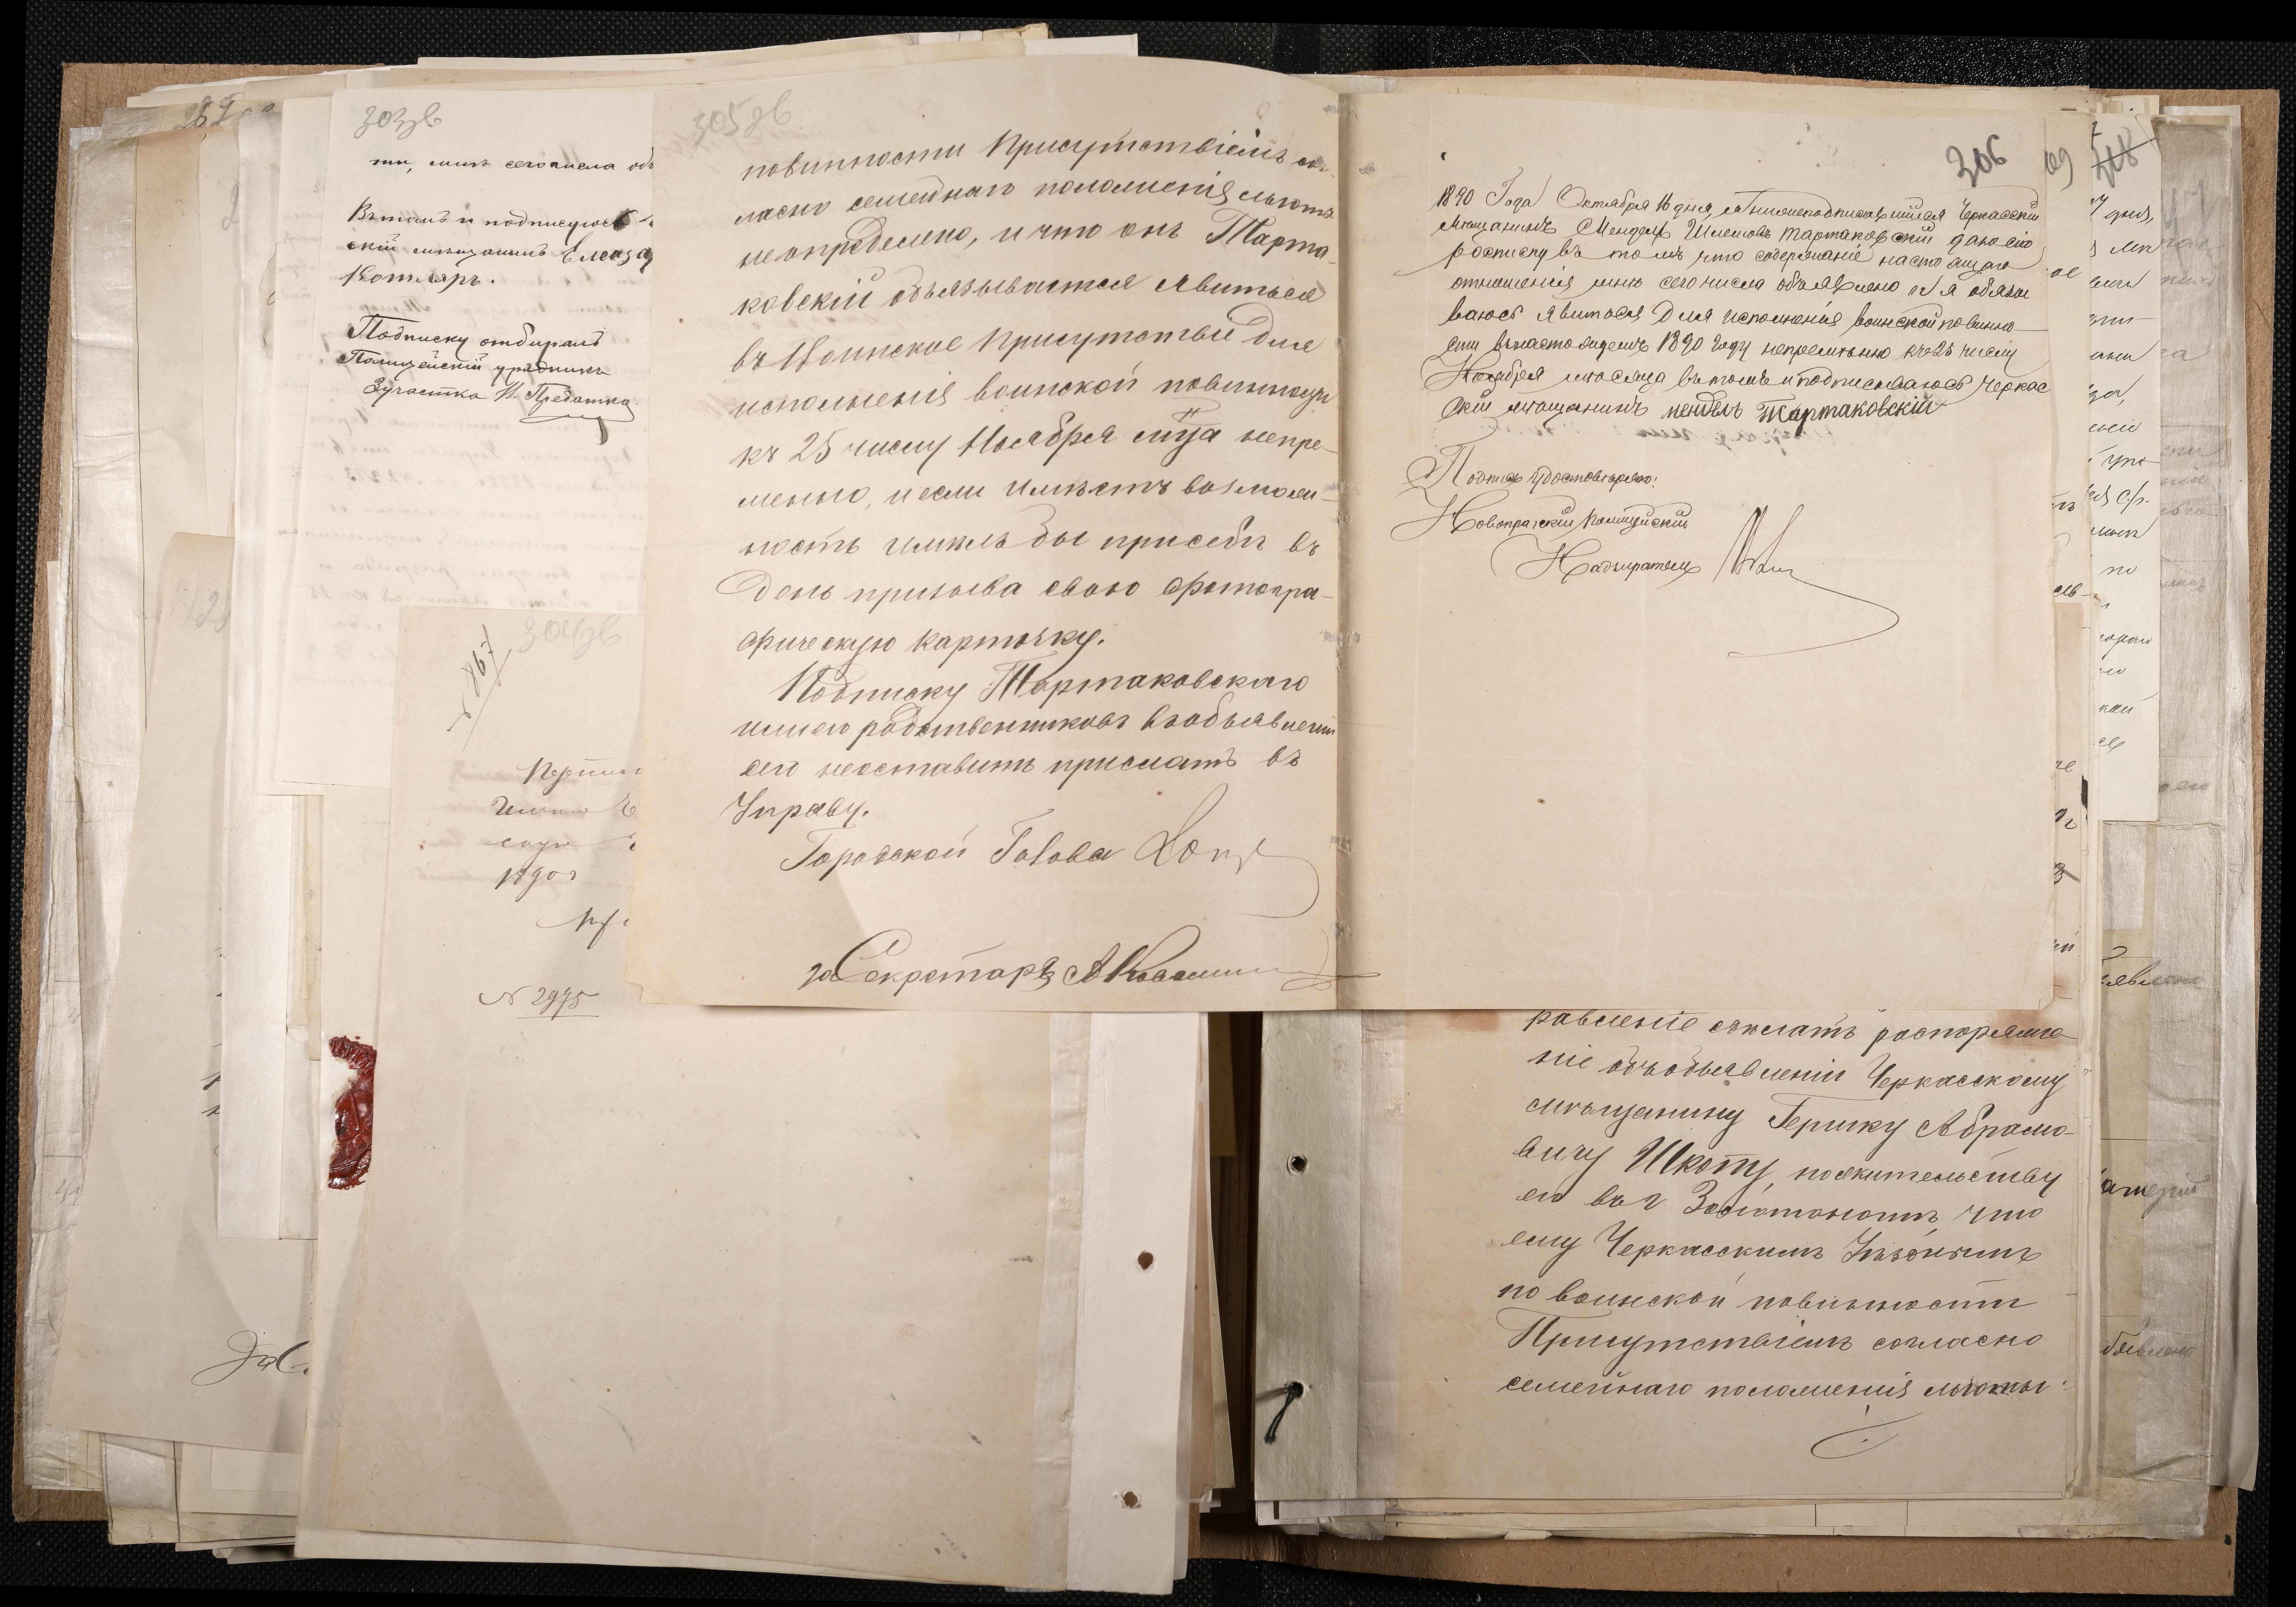 303об
ти, мнѣ сего числа объ
Въ томъ и подписуюсь
скій мѣщанинъ Елеаза
Котляръ.
Подписку отбиралъ
Полицейскій урядникъ
3 участка И. Предатко
304об
№ 867
1890 г
№ 2975
305об
повинности Присутствіемъ со-
гласно семейнаго положенія льгота
неопределено, и что онъ Тарта-
ковскій объязывается явиться
въ Воинское присутствіе для
исполненія воинской повинности
къ 25 числу Ноября мца непре-
менно, и если имѣетъ возмож-
ность имѣлъ бы при себѣ въ
день призыва свою фотогра-
фическую карточку.
Подписку Тартаковскаго
или его родственниковъ въ объявленіи
сего неоставить прислать въ
Управу.
Городской Голова
за Секретаря А
306
1890 Года Октября 16 дня, я нижеподписавшійся Черкасскій
мѣщанинъ Мендель Шлемовъ Тартаковскій даю сію
росписку въ томъ что содержаніе настоящаго
отношенія мнѣ сего числа объявлено и я обязы
ваюсь явиться для исполненія воинской повинно
сти въ настоящемъ 1890 году непремѣнно къ 25 числу
Ноября мѣсяца въ томъ и подписываюсь Черкас
скій мѣщанинъ Мендель Тартаковскій
Подпись удостовѣряю:
Новопражскій Полицейскій
Надзиратель
равленіе сдѣлать распоряже-
ніе объ объявленіи Черкасскому
мѣщанину Гершку Абрамо-
вичу Шкоту, по жительству
его въ г Золотоношѣ что
ему Черкасскимъ Уѣзднымъ
по воинской повинности
Присутствіемъ согласно
семейнаго положенія льготы